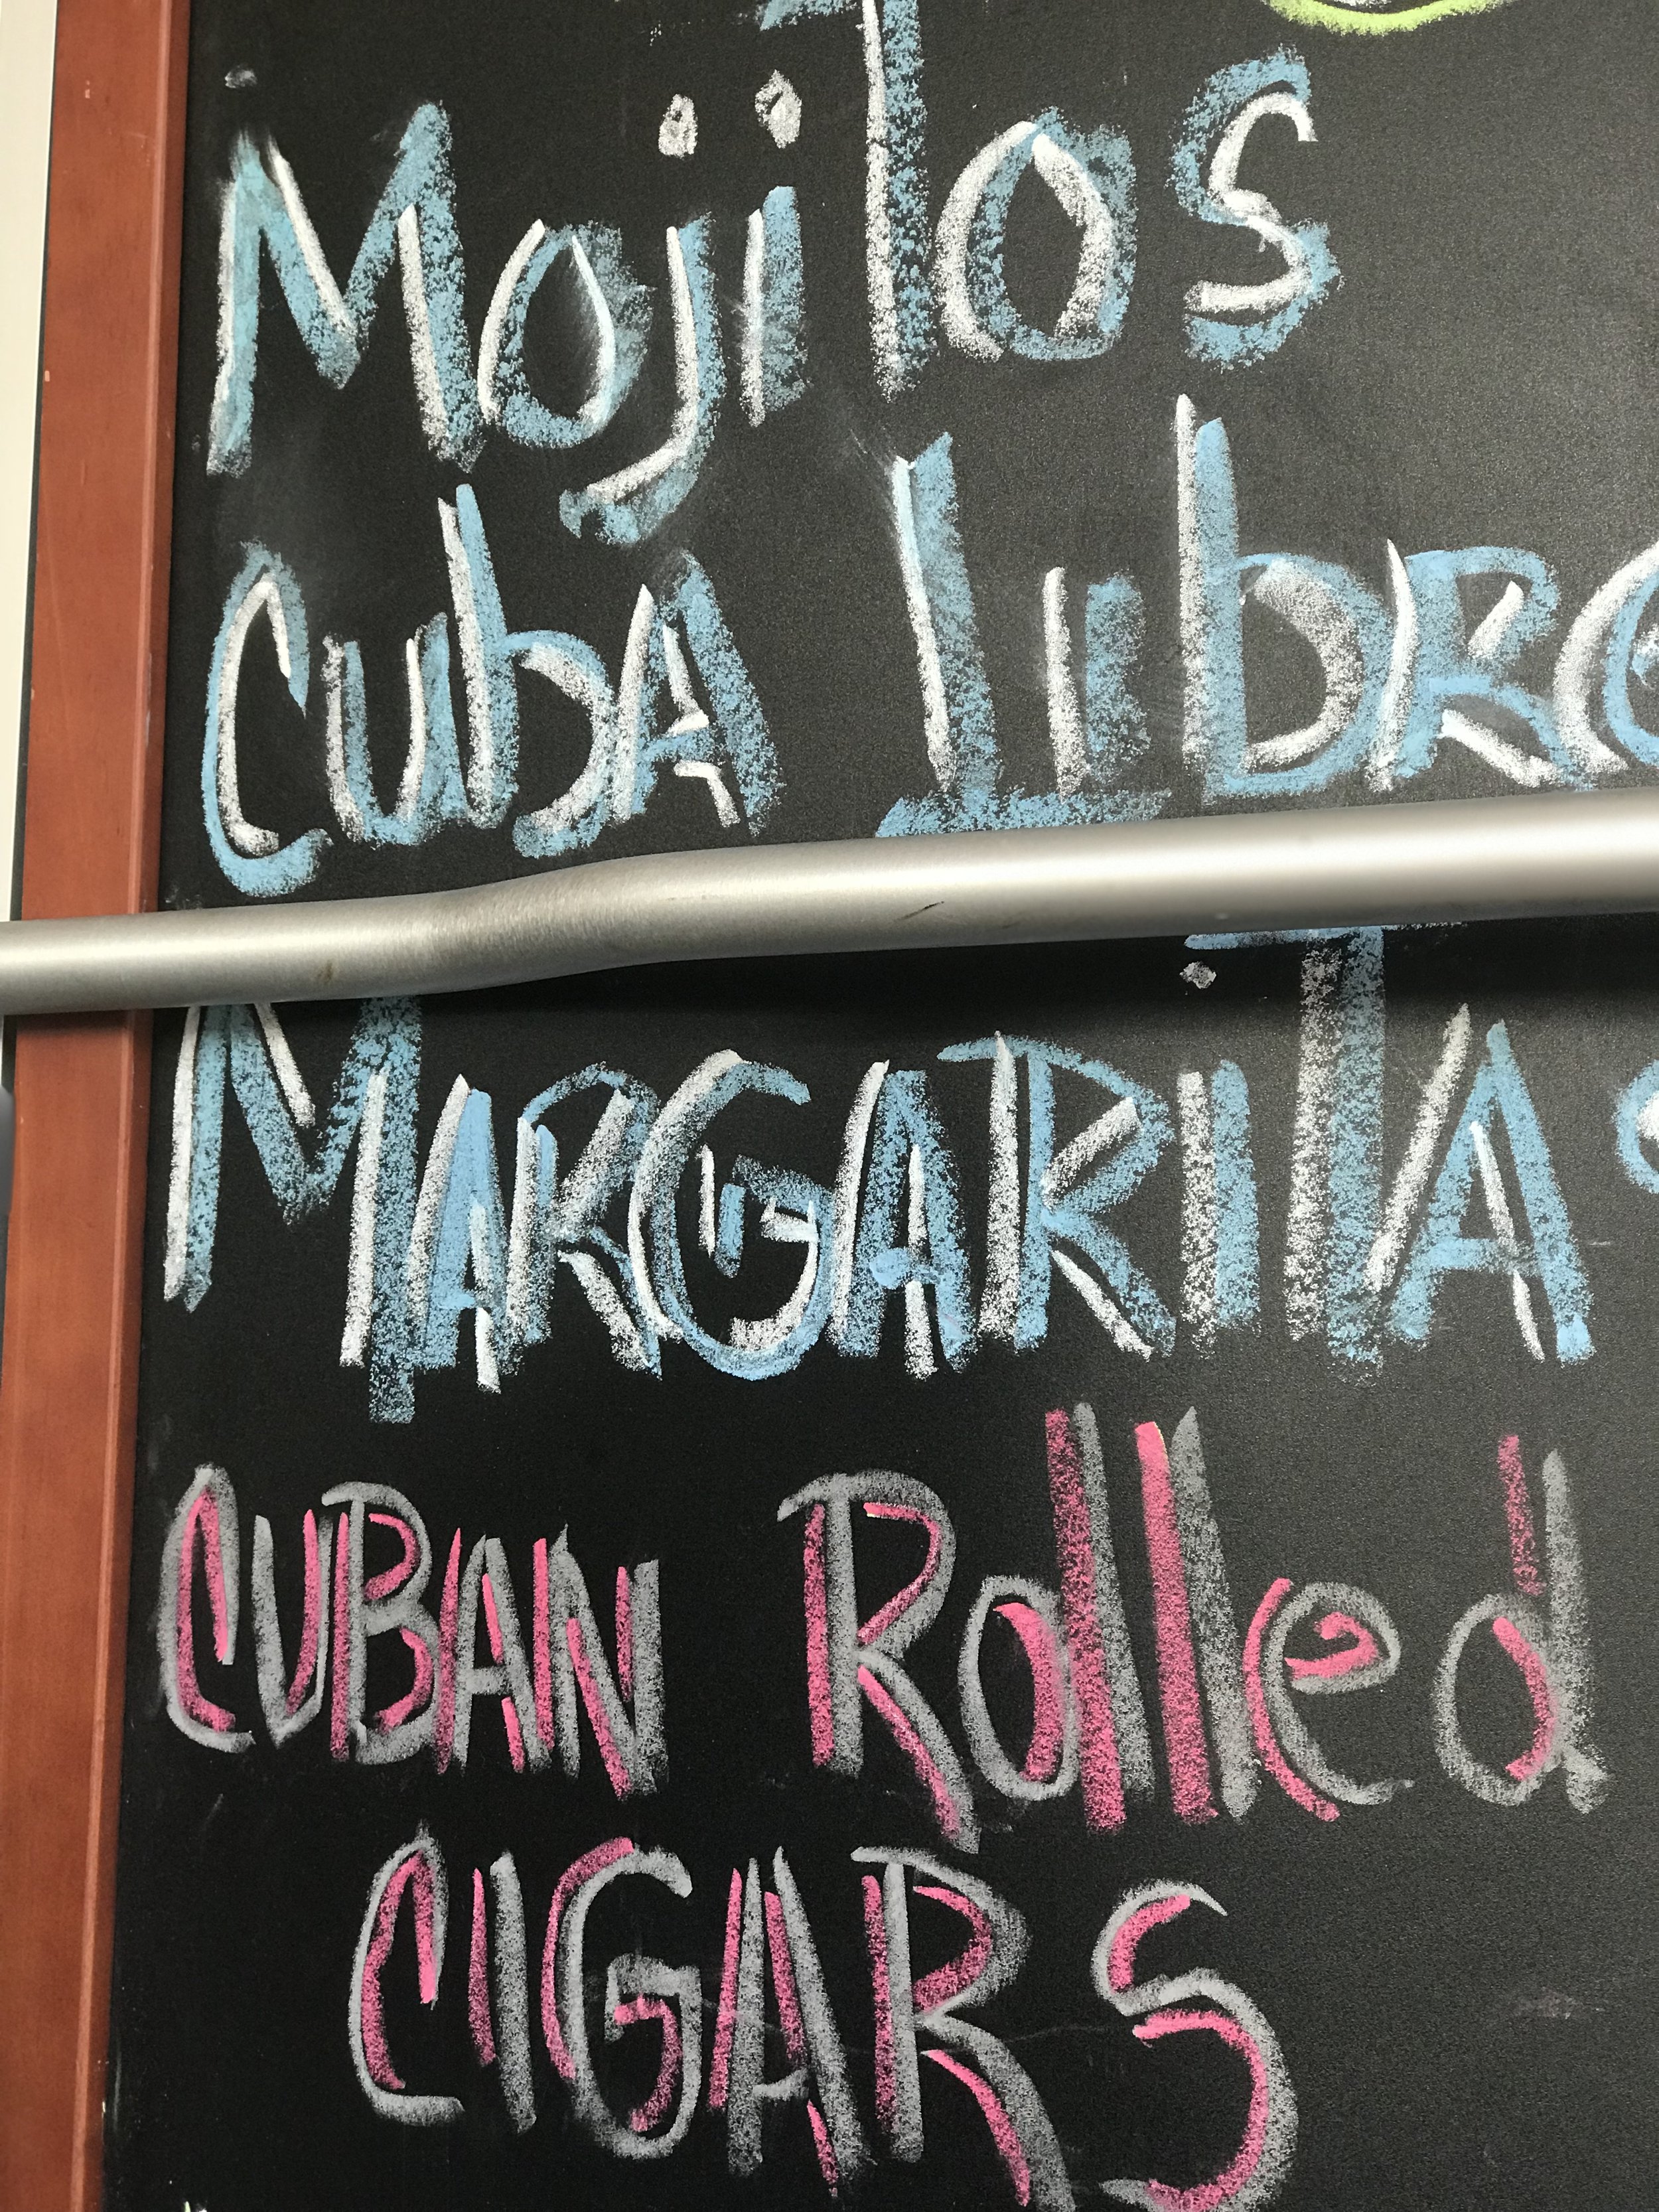 Mojitos
CubA LibRe
MARGARITAS
CUBAN Rolled
CIGARS